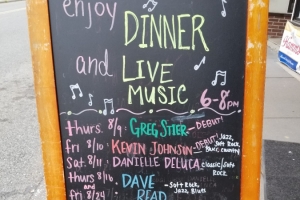 enjoy
DINNER
and LIVE
MUSIC
6-8PM
Thurs. 8/9: GREG STIER -DEBUT!
Fri 8/10 KEVIN JOHNSON -DEBUT! Jazz, Soft Rock, Blues, Country
Sat. 8/11 DANIELLE DELUCA classic/Soft Rock
Thurs 8/16 and Fri 8/24 DAVE READ -Soft Rock, Jazz, Blues